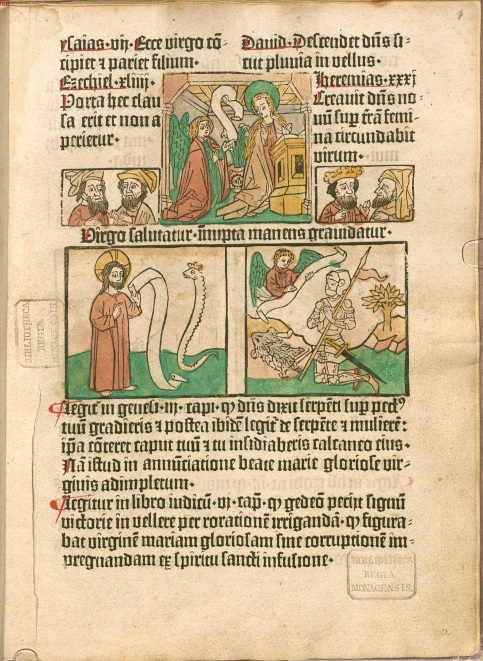 ysaias·vij· Ecce virgo cō-
cipiet ⁊ pariet filium·
Ezechiel·xliiij·
Porta hec clau
sa erit et non a
perietur·
David· Descendet dn̄s si-
cut pluvia in vellus·
Iheremias·xxxj
Creavit dn̄s no-
vū sup t̄rā femi-
na circundabit
virum·
Virgo salutatur·īnupta manens gravidatur·
Legit̄ in genesi·iij·capi·ꝙ dn̄s dixit serpēti sup pectꝰ
tuū gradieris ⁊ postea ibidē legit̄ de serpēte ⁊ muliere:
ip̄a cōteret caput tuū ⁊ tu insidiaberis calcaneo eius·
Nā istud in annūciatione beate marie gloriose vir-
ginis adimpletum·
Legitur in libro iudicū·vj·cap̄·ꝙ gedeō petijt signū
victorie in vellere per rorationē irrigandā·ꝙ figura-
bat virginē mariam gloriosam sine corruptionē im-
pregnandam ex spiritu sancti infusione·
BIBLIOTHECA
REGIA
MONACENSIS
BIBLIOTHECA
REGIA
MONACENSIS.
a